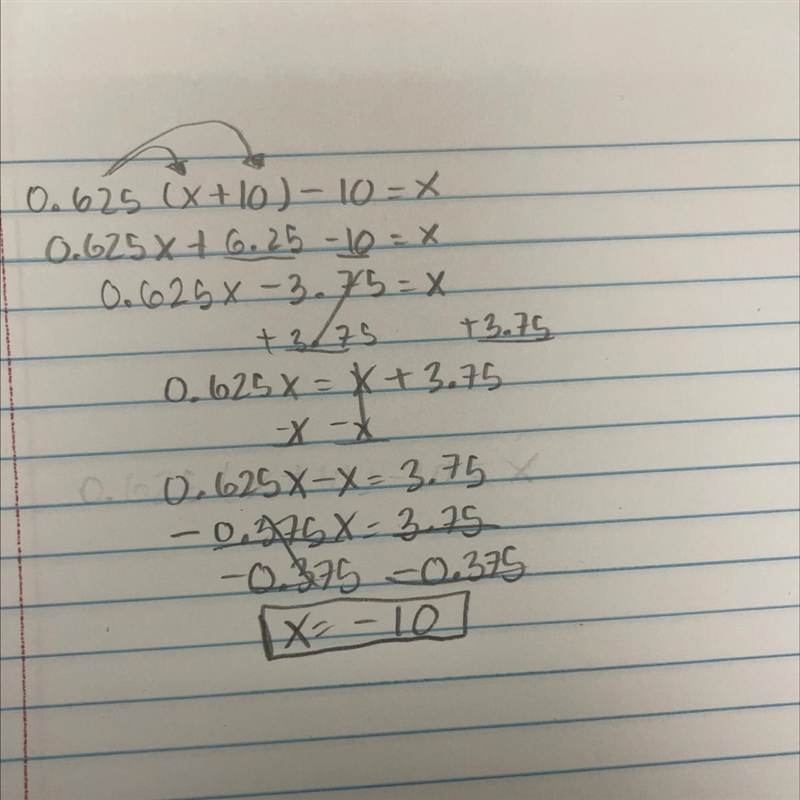 0.625 (x+10) - 10 = x
0.625x + 6.25 - 10 = x
0.625x - 3.75 = x
+3.75 +3.75
0.625x = x + 3.75
-x -x
0.625x - x = 3.75
-0.375x = 3.75
-0.375 -0.375
x = -10